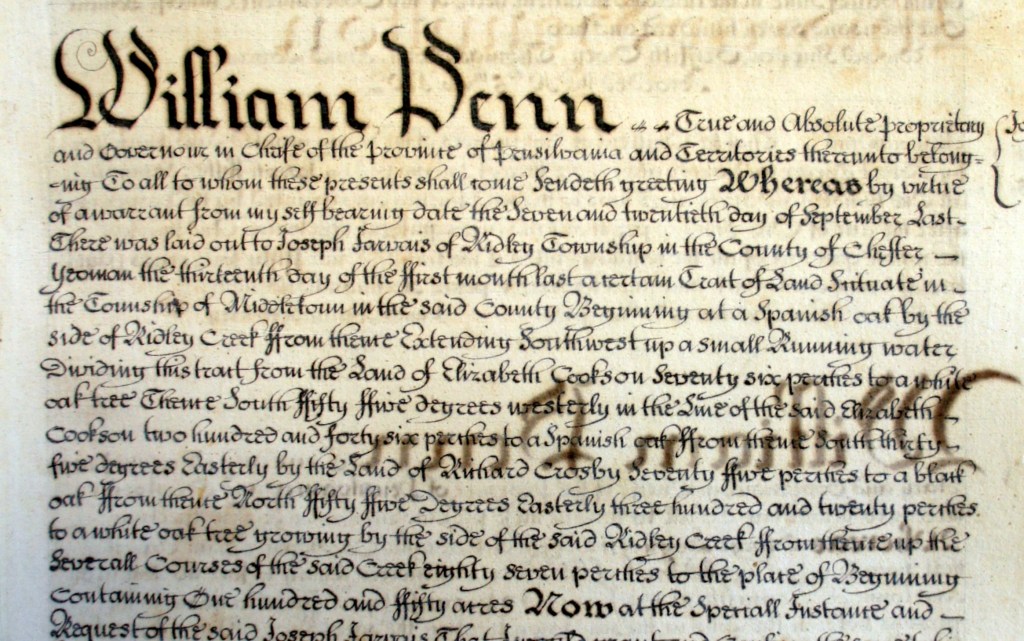 William Penn True and Absolute Proprietary
and Governour in Cheife of the Province of Pensilvania and Territories thereunto belong=
=ing To all to whom these presents shall come Sendeth greeting Whereas by virtue
of a warrant from my self bearing date the Seven and twentieth day of September Last
There was laid out to Joseph Jarvais of Ridley Township in the County of Chester
Yeoman the thirteenth day of the ffirst month last a certain Tract of Land Scituate in
the Township of Middletown in the said County Beginning at a Spanish oak by the
side of Ridley Creek ffrom thence Extending Southwest up a small Running water
Dividing this tract from the Land of Elizabeth Cookson Seventy six perches to a white
oak tree Thence South ffifty ffive degrees westerly in the Line of the said Elizabeth
Cookson two hundred and forty six perches to a Spanish oak ffrom thence South thirty
five degrees Easterly by the Land of Richard Crosby Seventy ffive perches to a black
oak ffrom thence North ffifty ffive Degrees Easterly three hundred and twenty perches
to a white oak tree growing by the side of the said Ridley Creek ffrom thence up the
Severall Courses of the said Creek eighty seven perches to the place of Beginning
Containing One hundred and ffifty acres Now at the Speciall Instance and
Request of the said Joseph Jarvais That I would